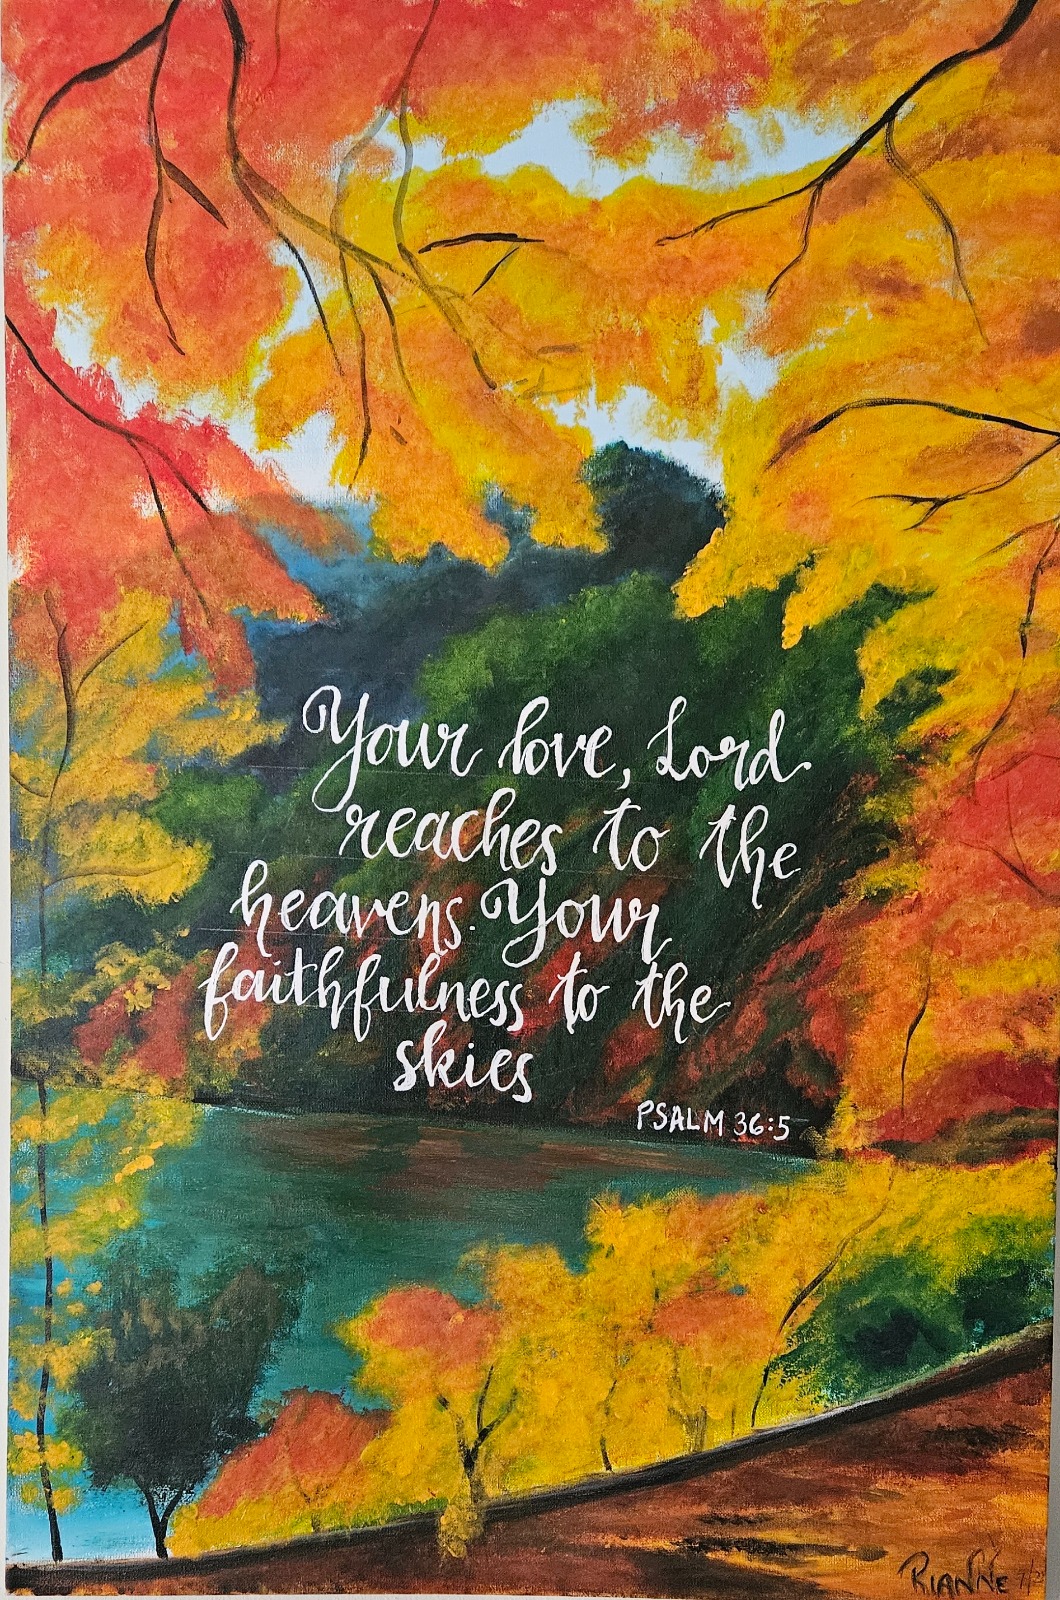 Your love, Lord
reaches to the
heavens. Your
faithfulness to the
skies
PSALM 36:5
RIANNE